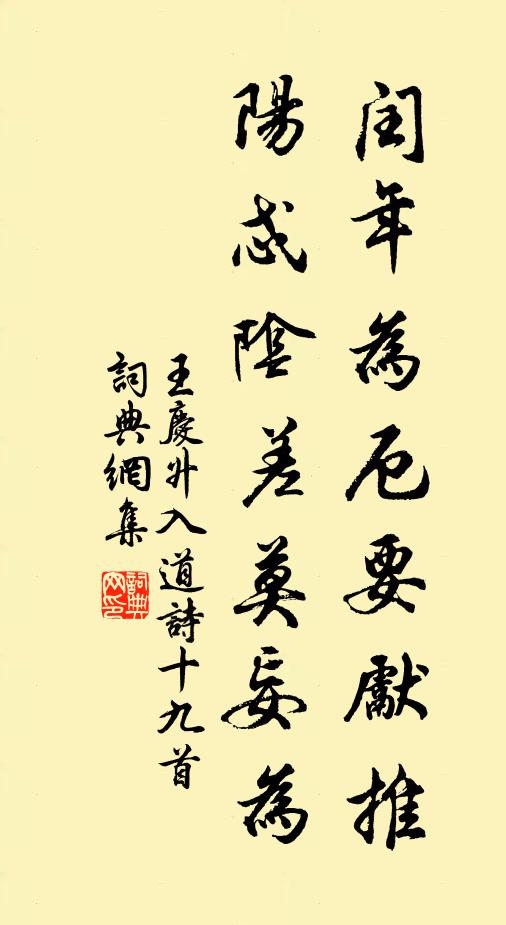 閏年為厄要獻推
陽忒陰差莫妄為
王慶升入道詩十九首
詞典網集
詞典網印